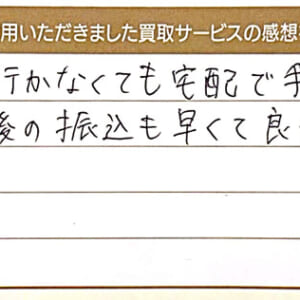 用いただきました買取サービスの感想
行かなくても宅配で手
後の振込も早くて良